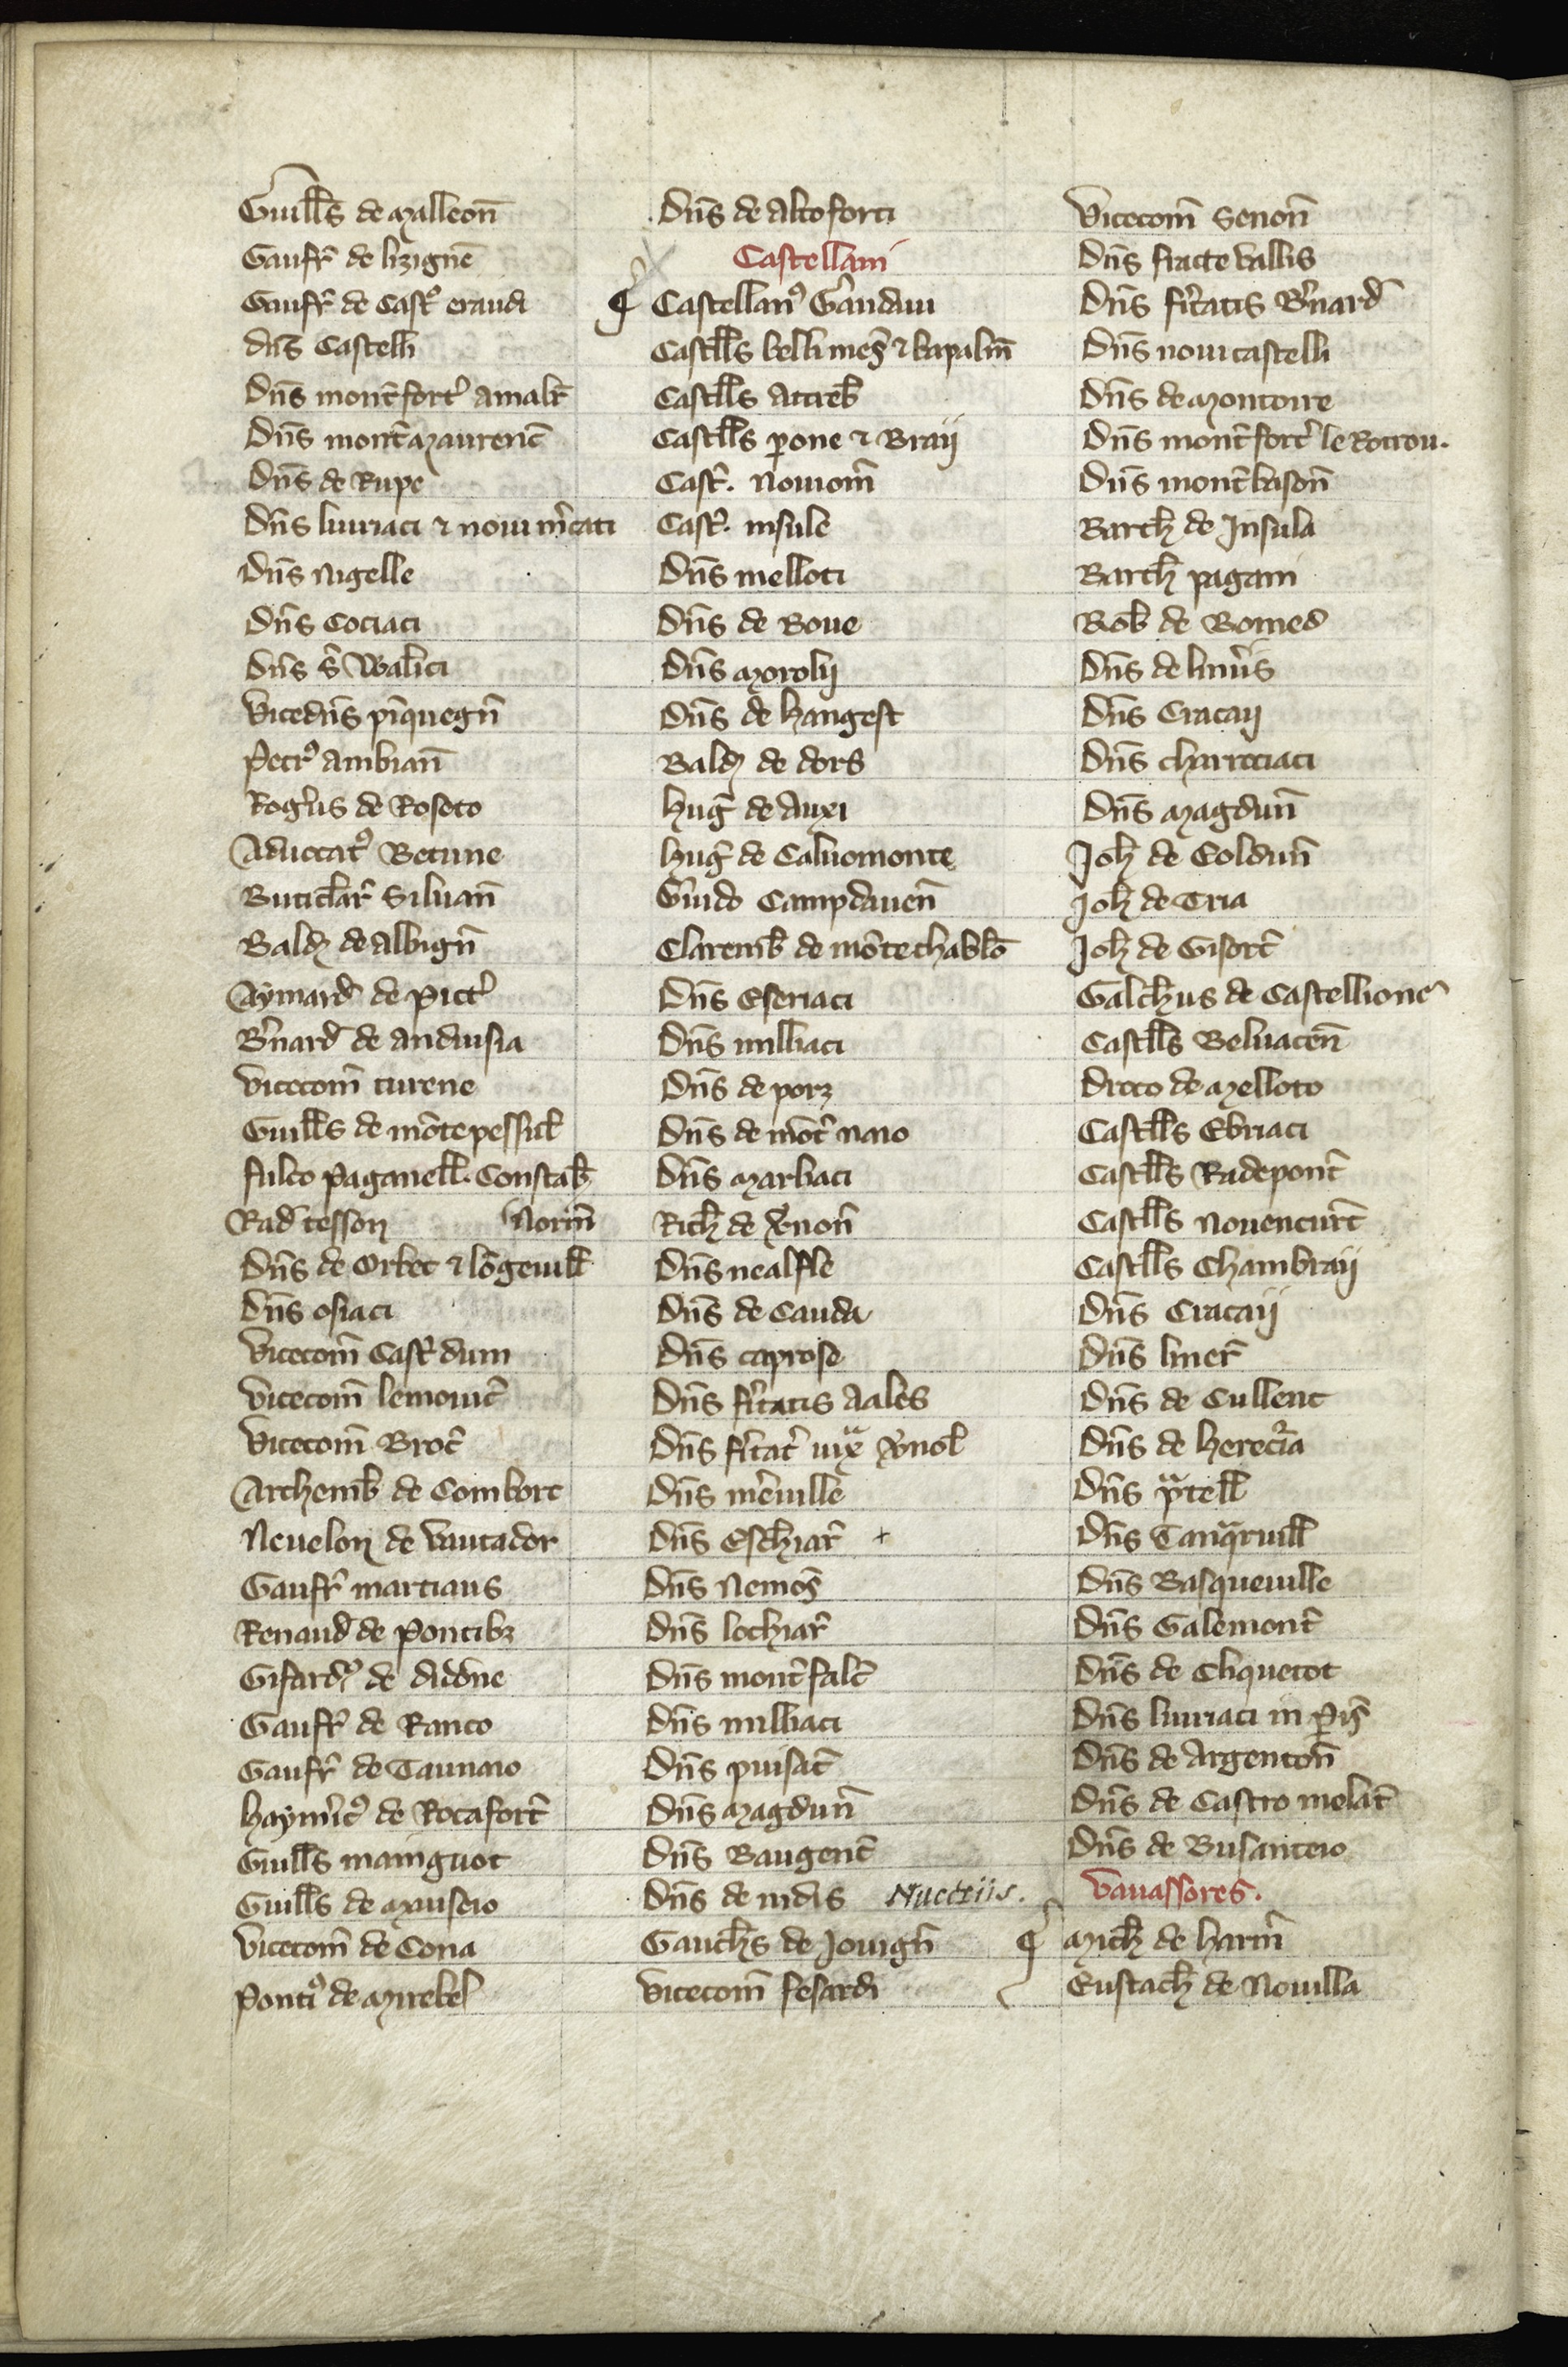 Guill̄s de malleon̄
Gaufr̄ de lizigne̅
Gaufr̄ de Castꝰ eraudi
dn̄s Castelli
Dn̄s mont̄fort̄ amalr̄
Dn̄s mont̄maurenc̄
Dn̄s de Rupe
Dn̄s liuriaci ⁊ noui m̄cati
Dn̄s Nigelle
Dn̄s Cociaci
Dn̄s s̄ Walr̄ici
Vicedn̄s pīquegn̄
Petrꝰ ambian̄
Rog̾us de Roseto
Aduocatꝰ Betune
Buticlar̄ Siluan̄
Bald̄ de albign̄
Aymard̄ de pict̄
B̾nard̄ de andusia
vicecom̄ turene
Guill̄s de mōtepessul̄
fulco paganell̄. Constab̄
Norm̄
Rad̄ tesson
Dn̄s de Orbec ⁊ lōgeuill̄
Dn̄s osiaci
Vicecom̄ Castͬ duni
Vicecom̄ lemouic̄
Vicecom̄ Broc̄
Archemb̄ de Combort
Neuelon de vautador
Gaufr̄ martiaus
Renaud̄ de pontibꝫ
Gifard̄ꝰ de didone
Gaufr̄ de Ranco
Gaufr̄ de Taunaio
haym̄icꝰ de Rocafort̄
Guill̄s mainguot
Guill̄s de mauseio
Vicecom̄ de Cona
Pontiꝰ de mirebel
Dn̄s de alto forti
Castellani
¶ Castellanꝰ Gaudani
Castll̄s belli mes̄ ⁊ bapalm̄
Castll̄s attreb̄
Castll̄s ꝑone ⁊ Braij
Castͬ. Nouiom̄
Castͬ. insule
Dn̄s melloti
Dn̄s de Boue
Dn̄s morolij
Dn̄s de hangest
Bald̄ de dors
hug̾ de Auxi
hug̾ de Caluomonte
Guido Campdauen̄
Claremb̄ de mōtechablō
Dn̄s Eseriaci
Dn̄s milliaci
Dn̄s de porꝫ
Dn̄s de mōt̄ naio
Dn̄s marliaci
Rich̄ de v̾non̄
Dn̄s nealfle
Dn̄s de Cauda
Dn̄s caprose
Dn̄s f̾itatis aales
Dn̄s f̾itat̄ iuxᵃ v̾nol̄
Dn̄s m̄euille
Dn̄s Eschiar̄ +
Dn̄s Nemos̄
Dn̄s lochiar̄
Dn̄s mont̄falc̄
Dn̄s milliaci
Dn̄s puisac̄
Dn̄s magdun̄
Dn̄s Baugenc̄
Dn̄s de nidis Nuceriis.
Gauch̄s de Jouign̄
Vicecom̄ fesardi
Vicecom̄ Senon̄
Dn̄s fracte vallis
Dn̄s f̾itatis B̾nard̄
Dn̄s noui castelli
Dn̄s de montoire
Dn̄s mont̄fort̄ le Rotrou.
Dn̄s mont̄bason̄
Barth̄ de Insula
Barth̄ pagani
Rob̄ de Bomes
Dn̄s de lin̾iis
Dn̄s Cracaij
Dn̄s charrociaci
Dn̄s magdun̄
Joh̄ de Coldun̄
Joh̄ de Tria
Joh̄ de Gisort̄
Galch̄us de Castellione
Castll̄s Beluacen̄
Droco de melloto
Castll̄s Ebriaci
Castll̄s Radepont̄
Castll̄s Nouencurt̄
Castll̄s Chambraij
Dn̄s Cracaij
Dn̄s liner̄
Dn̄s de Cullent
Dn̄s de herec̾ia
Dn̄s pᵃtell̄
Dn̄s Tanqͣruill̄
Dn̄s Basqueuille
Dn̄s Galemont̄
Dn̄s de Cliquetot
Dn̄s liuriaci in ꝑis̄
Dn̄s de Argenton̄
Dn̄s de Castro melar̄
Dn̄s de Busanteio
Vauassores.
¶ mich̄ de harm̄
Eustach̄ de Nouilla